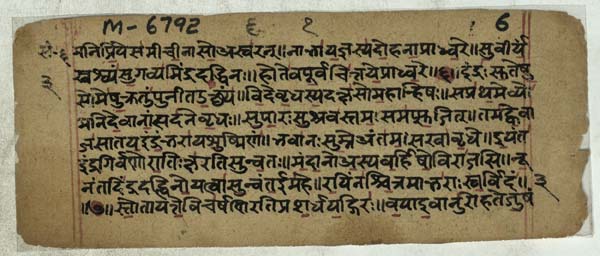 M-6792 ६ १ 6
मनिप्रियं समीचीनासो अस्वरन्॥ नाभायज्ञस्यदोहनाप्राध्वरे॥ सुवीर्यं
स्वश्व्यंसुगव्यमिंद्रदद्धिनः॥ होतेवपूर्वचित्तयेप्राध्वरे॥६॥ इंद्रःसुतेषु
३
सोमेषुक्रतुंपुनीतउक्थ्यं॥ विदेवृधस्यदक्षसोमहान्हिषः॥ सप्रथमेव्यो
मनिदेवानांसदनेवृधः॥ सुपारःसुश्रवस्तमःसमप्सुजित्॥ तमह्वेवा
जसातयइंद्रंभरायशुष्मिणं॥ भवानःसुम्नेअंतमःसखावृधे॥ इयंत
इंद्रगिर्वणोरातिःक्षरतिसुन्वतः॥ मंदानोअस्यबर्हिषोविराजसि॥ नू
नंतदिंद्रदद्धिनोयत्त्वासुन्वंतईमहे॥ रयिंनश्चित्रमाभरास्वर्विदं॥ ३
॥७॥ स्तोतायत्तेविचर्षणिरतिप्रशर्धयद्गिरः॥ वयाइवानुरोहतेजुष